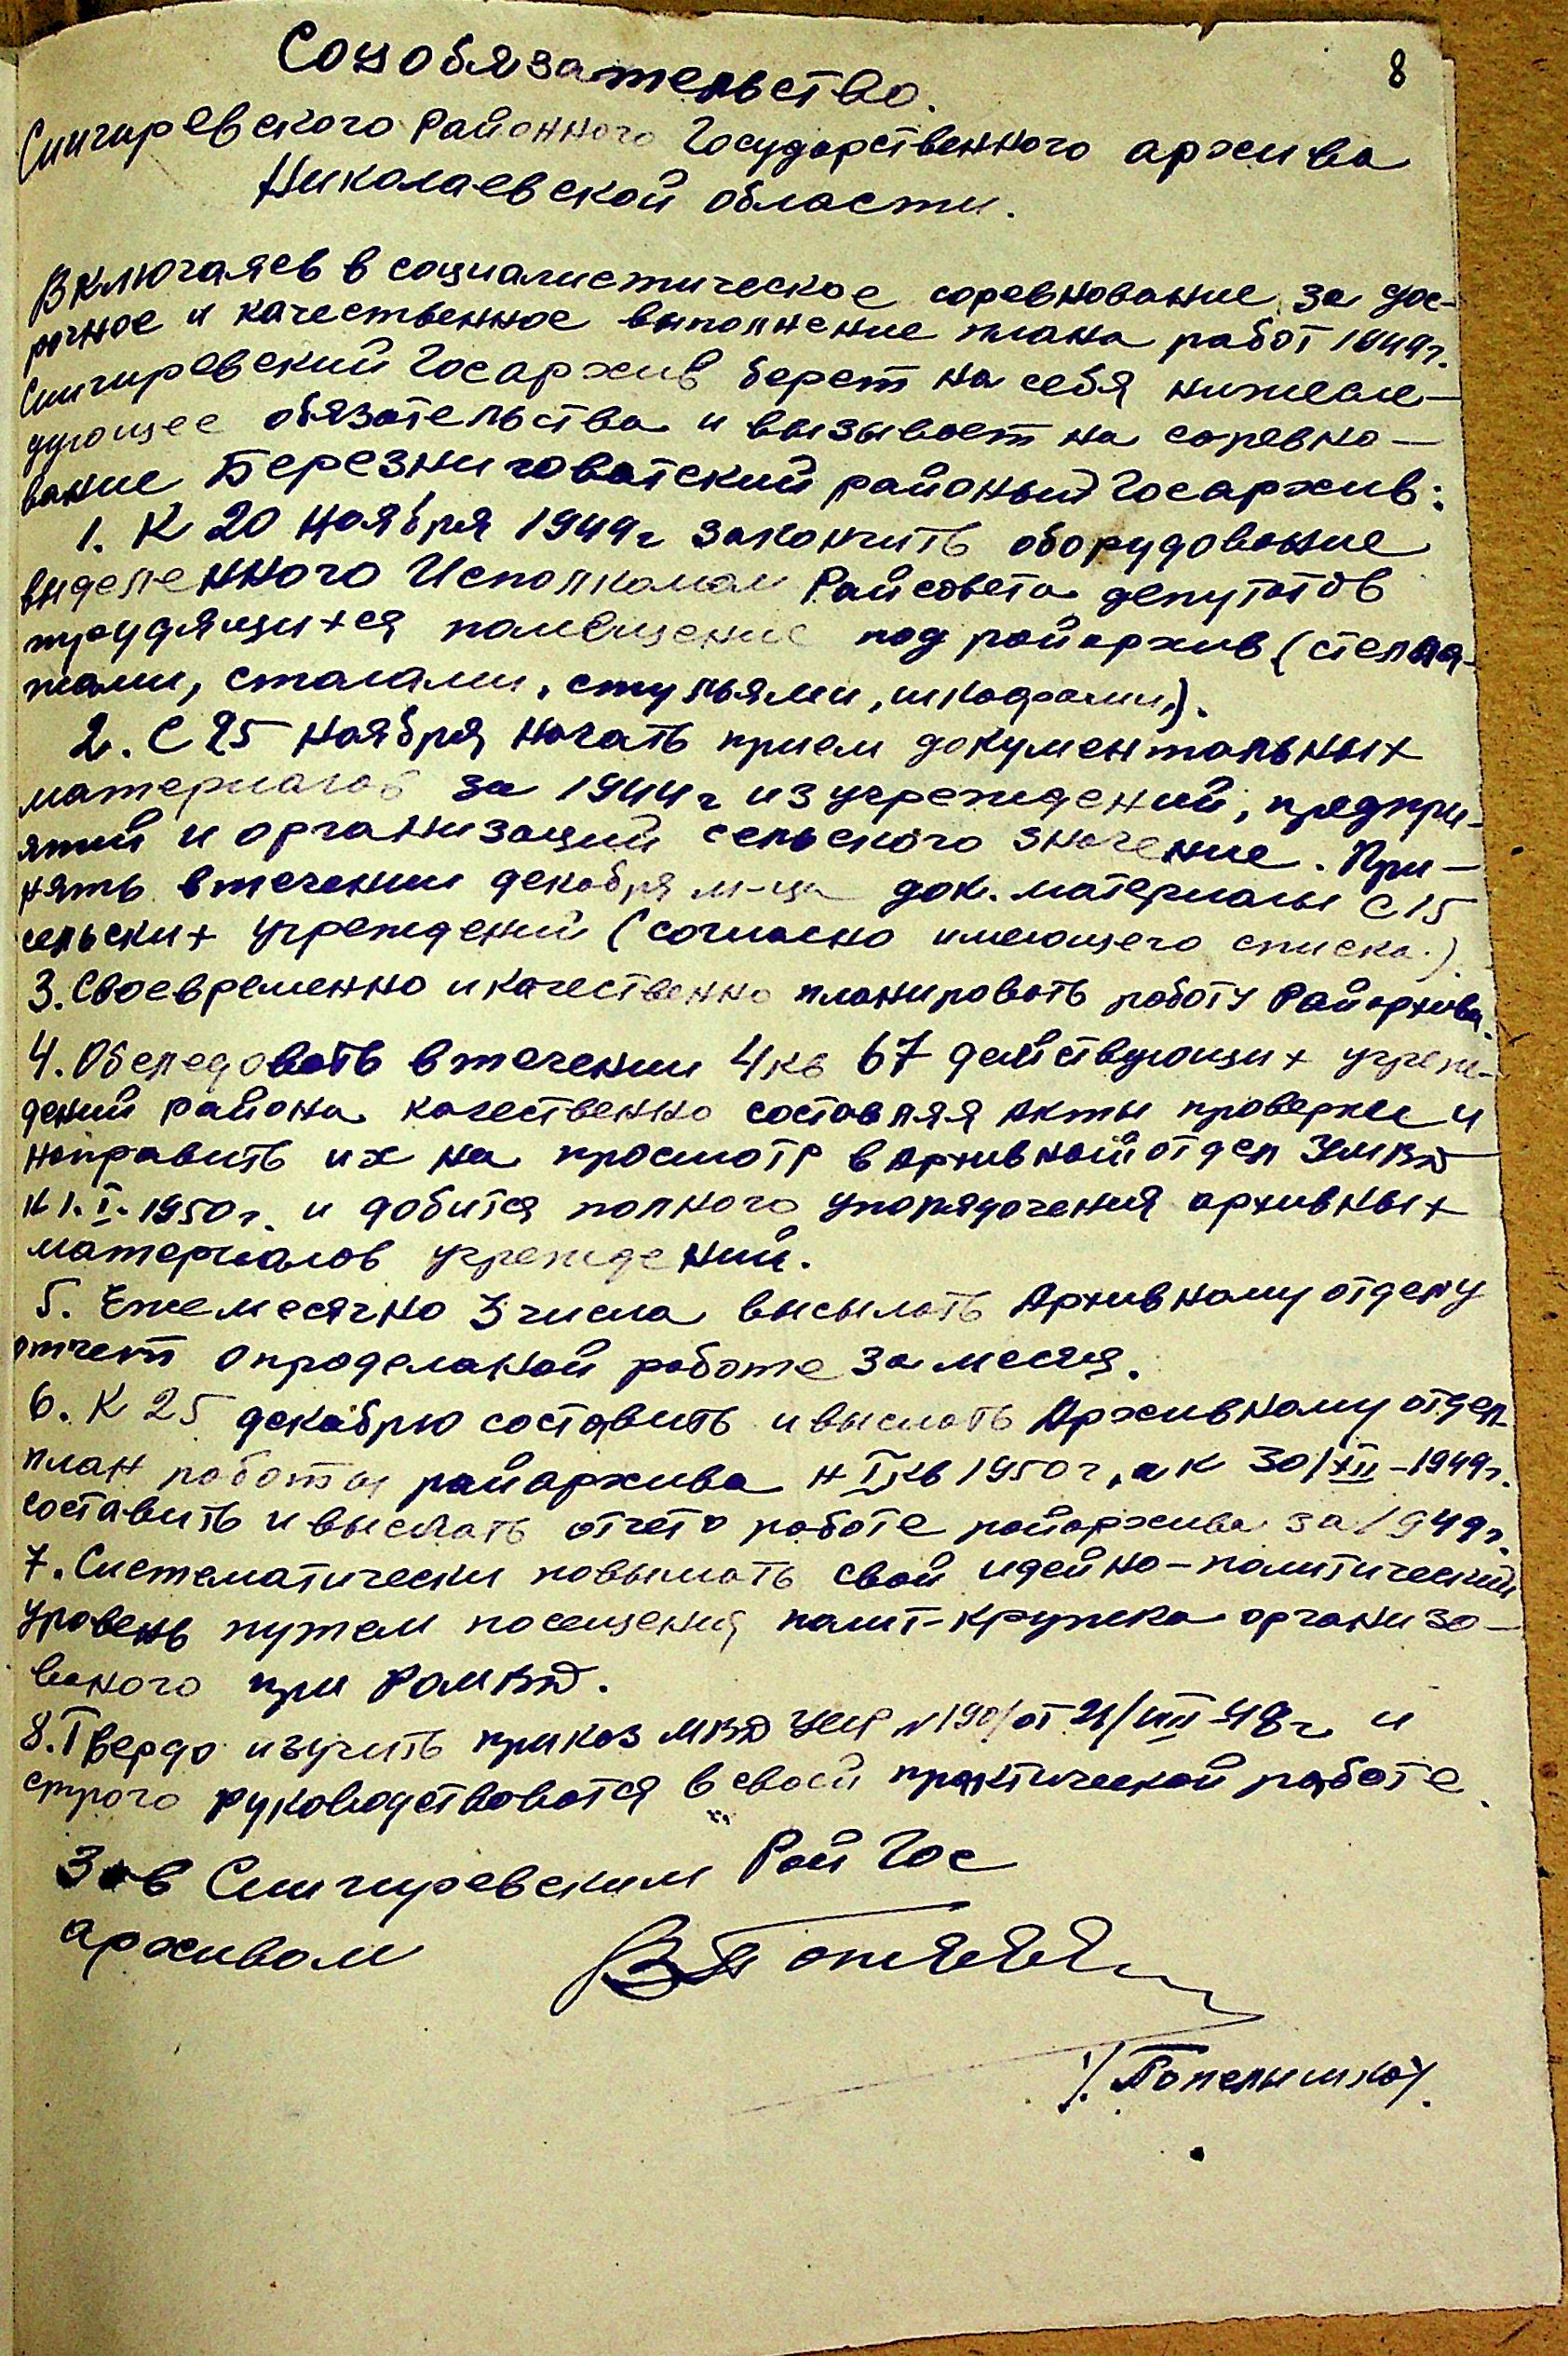 8
Соцобязательство.
Снигиревского Районного Государственного архива
Николаевской области.
Включаясь в социалистическое соревнование за дос-
рочное и качественное выполнение плана работ 1949г.
Снигиревский Госархив берет на себя нижесле-
дующее обязательства и вызывает на соревно-
вание Березниговатский районый Госархив:
1. К 20 ноября 1949г закончить оборудование
выделенного Исполкомом Райсовета депутатов
трудящихся помещение под райархив (стелла-
жами, столами, стульями, шкафами,).
2. С 25 ноября начать прием документальных
материалов за 1944г из учреждений, предпри-
ятий и организаций сельского значение. При-
нять втечении декабря м-ца док. материалы с 15
сельских учреждений (согласно имеющего списка.).
3. Своевременно и качественно планировать работу Райархива.
4. Обследовать втечении 4 кв 67 действующих учреж-
дений района качественно составляя акты проверки и
направить их на просмотр в Архивный отдел УМВД
к 1.I.1950г. и добится полного упорядочения архивных
материалов учреждений.
5. Ежемесячно 3 числа высылать Архивному отделу
отчет о проделаной работе за месяц.
6. К 25 декабрю составить и выслать Архивному отдел
план работы райархива н I кв 1950г, а к 30/XII-1949г.
составить и выслать отчет о работе райархива за 1949г.
7. Систематически повышать свой идейно-политический
уровень путем посещения полит-кружка организо-
ваного при РОМВД.
8. Твердо изучить приказ МВД УССР N190/от 21/VIII-48г и
строго руководствоватся в своей практической работе.
Зав Снигиревским РайГос
архивом
/. Попельшко/.